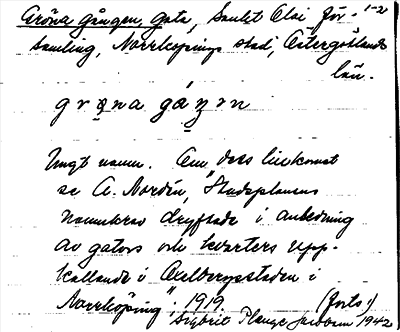 Gröna gången, gata, Sankt Olai för- 1-2
samling, Norrköpings stad, Östergötlands
län.
grøna gáŋən
Ungt namn. Om dess tillkomst
se A. Nordén, "Stadsplanens
namnkrav dryftade i anledning
av gators och kvarters upp-
kallande i Oxelbergsstaden i
Norrköping". 1919. (forts.)
Sigbrit Plange Jacobson 1942